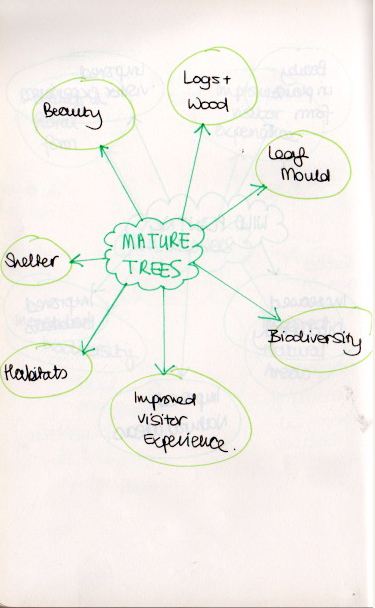 Logs +
Wood
Beauty
Leaf
Mould
MATURE
TREES
Shelter
Biodiversity
Habitats
Improved
Visitor
Experience.